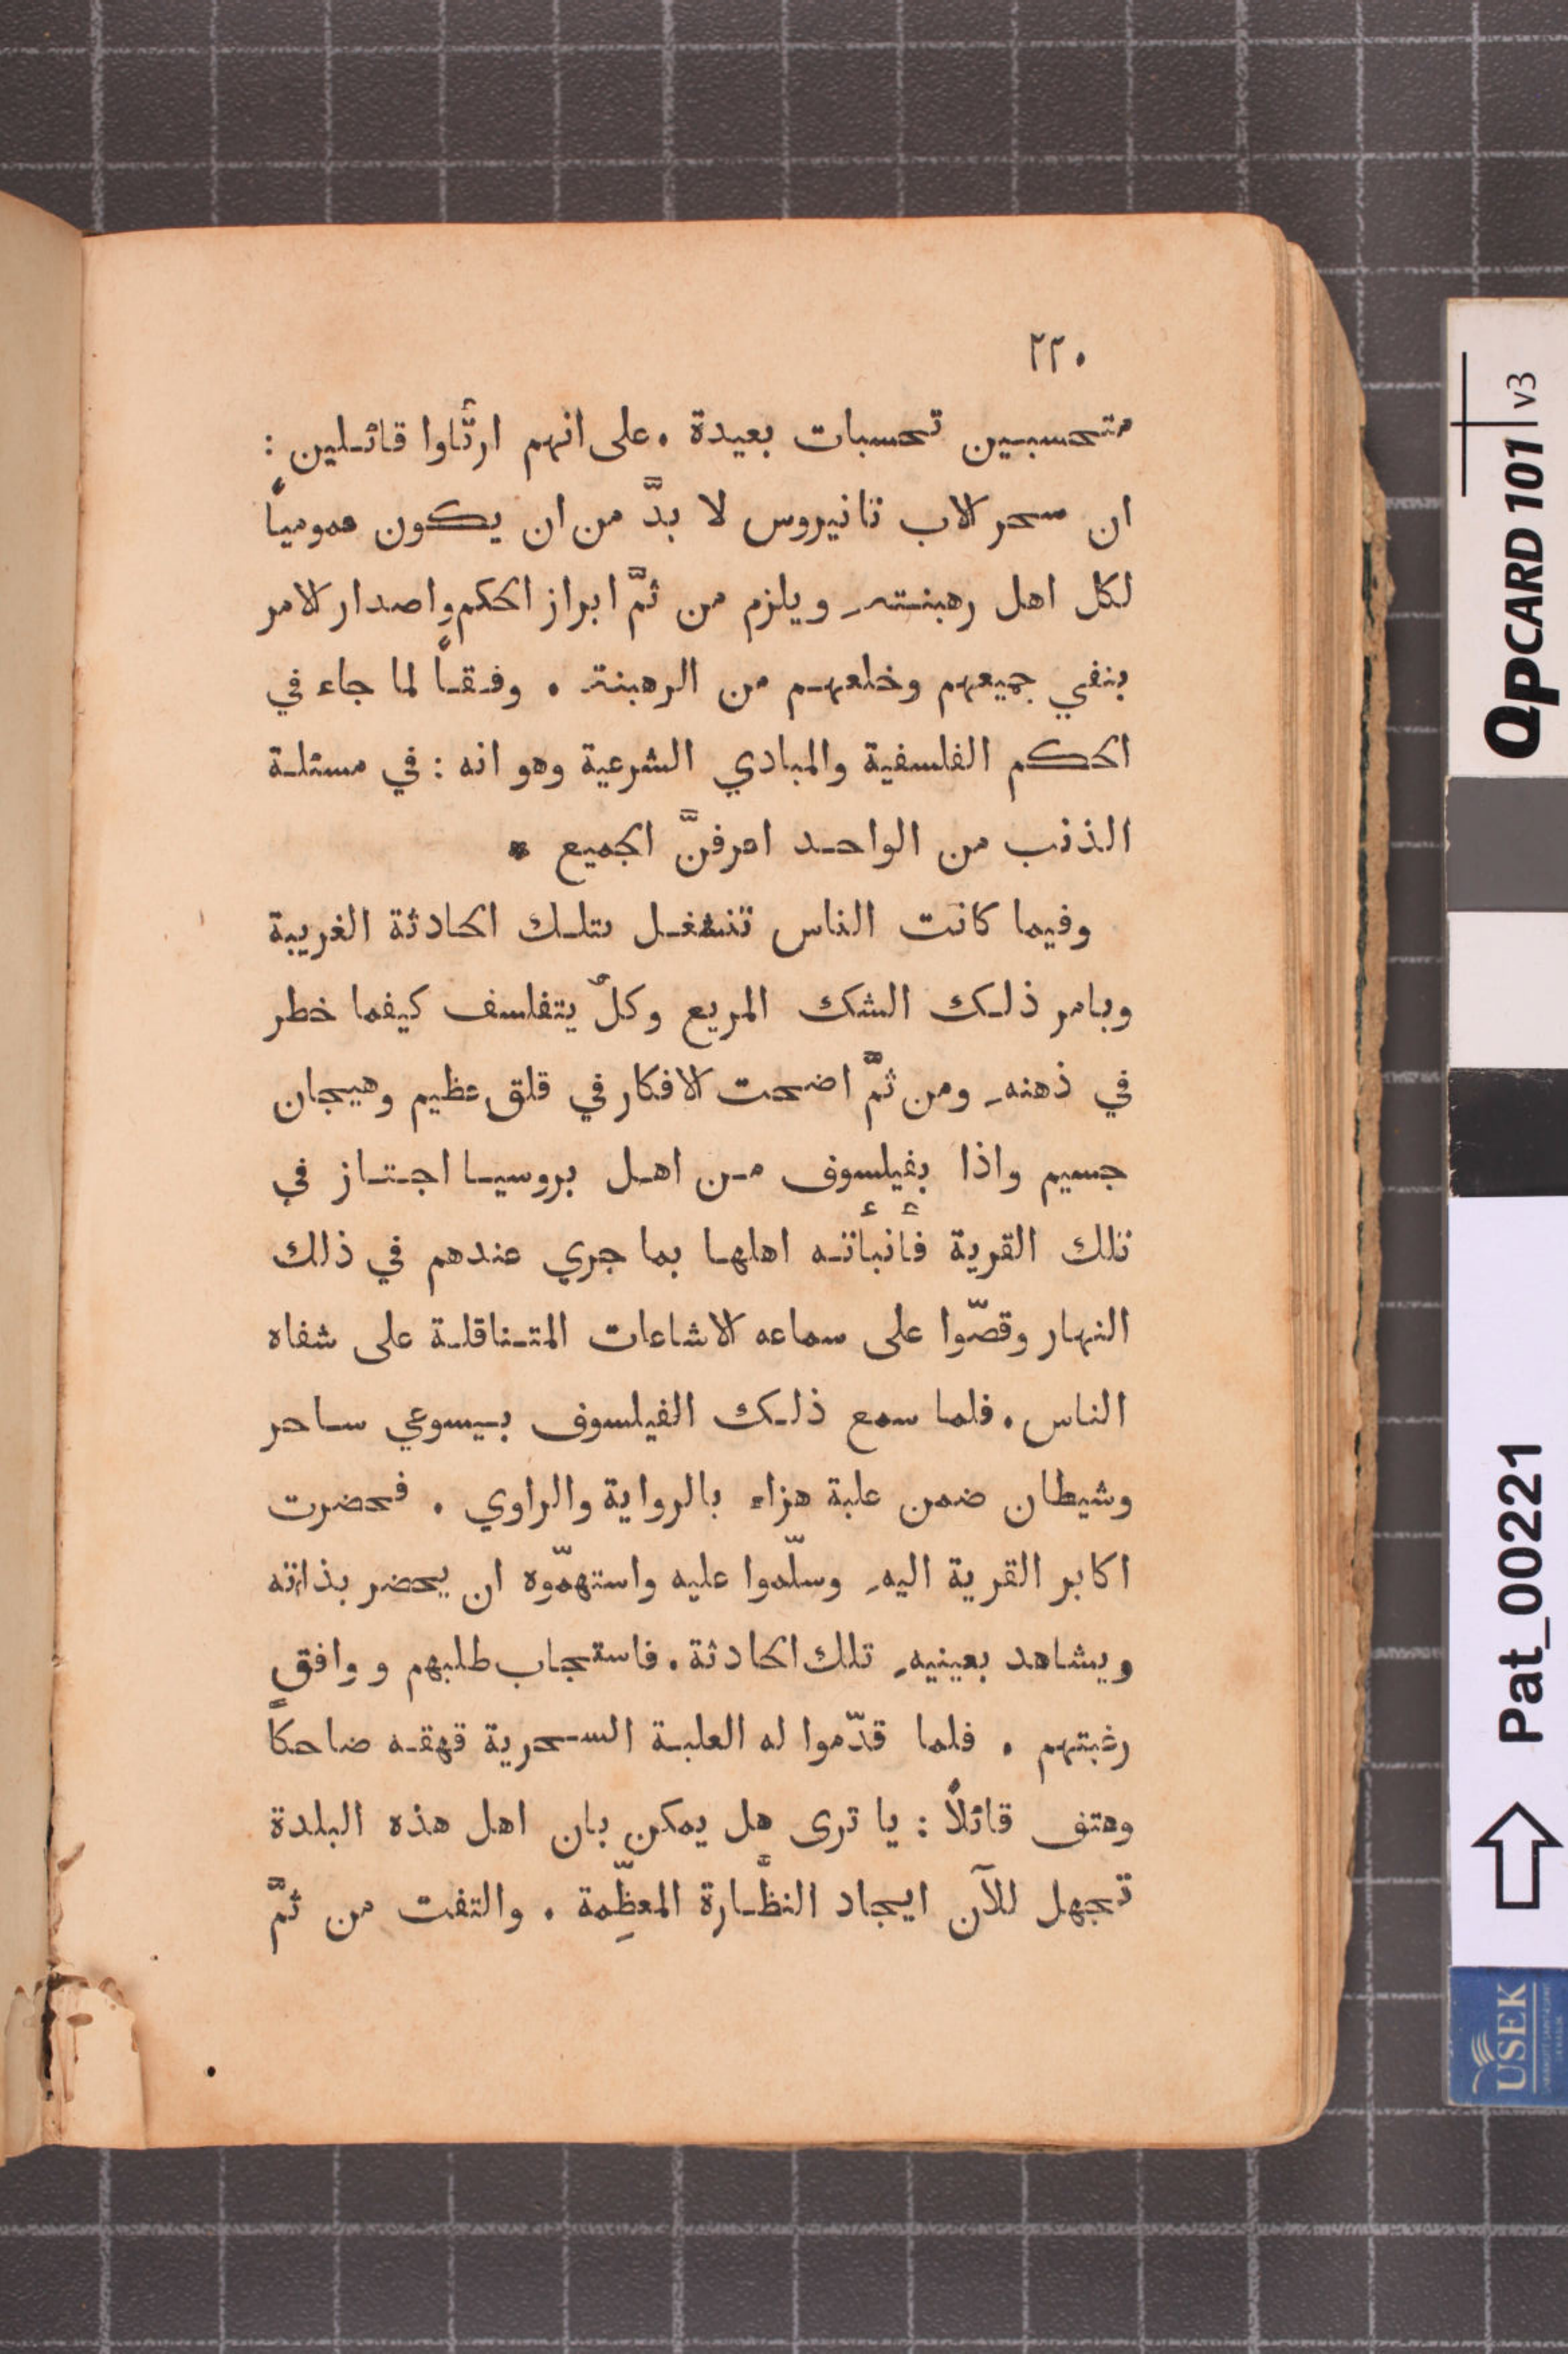 ٢٢٠
متحسبين تحسبات بعيدة . على انهم ارتَّأوا قائلين :
ان سحر الاب تانيروس لا بدَّ من ان يكون عمومياً
لكل اهل رهبنته ويلزم من ثمَّ ابراز الحكم واصدار الامر
بنفي جميعهم وخلعهم من الرهبنة . وفقاً لما جاء في
الحكم الفلسفية والمبادي الشرعية وهو انه : في مسئلة
الذنب من الواحد اعرفنَّ الجميع *
وفيما كانت الناس تنشغل بتلك الحادثة الغريبة
وبامر ذلك الشك المريع وكلٌ يتفلسف كيفما خطر
في ذهنه ومن ثمَّ اضحت الافكار في قلق عظيم وهيجان
جسيم واذا بفيلسوف من اهل بروسيا اجتاز في
تلك القرية فأنبأته اهلها بما جري عندهم في ذلك
النهار وقصّوا على سماعه الاشاعات المتناقلة على شفاه
الناس . فلما سمع ذلك الفيلسوف بيسوعي ساحر
وشيطان ضمن علبة هزاء بالرواية والراوي . فحضرت
اكابر القرية اليهِ وسلّموا عليه واستهمّوه ان يحضر بذاته
ويشاهد بعينيهِ تلك الحادثة . فاستجاب طلبهم ووافق
رغبتهم . فلما قدّموا له العلبة السحرية قهقه ضاحكاً
وهتف قائلاً : يا ترى هل يمكن بان اهل هذه البلدة
تجهل للآن ايجاد النظَّارة المعظِّمة . والتفت من ثمَّ
QPCARD 101 v3
Pat_00221
USEK